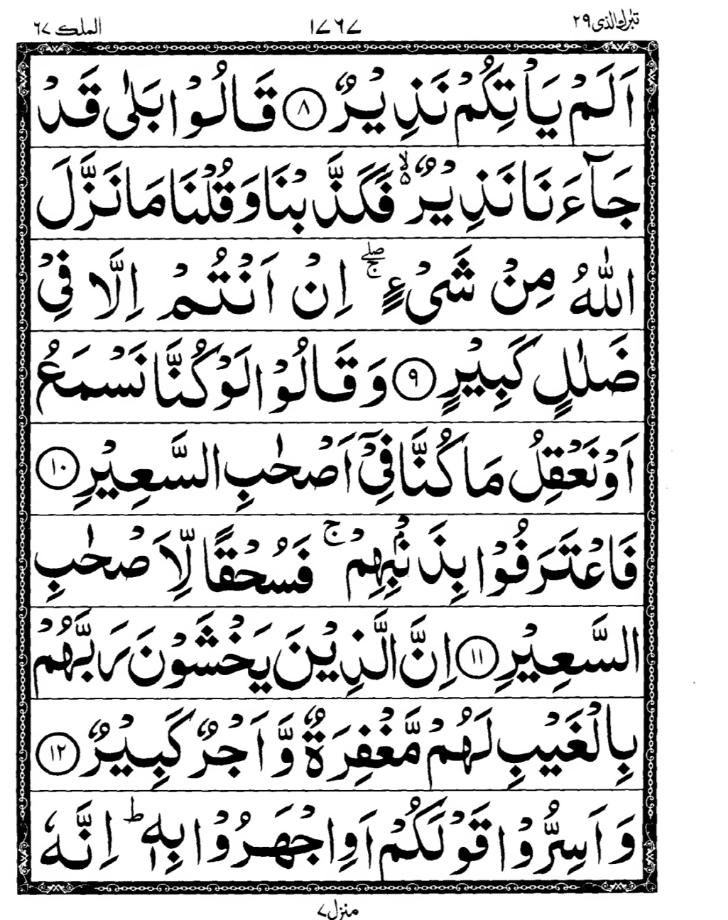 تبٰرك الذی ۲۹ ۱۷۶۷ الملك ۶۷
اَلَمْ یَاْتِكُمْ نَذِیْرٌ ﴿۸﴾ قَالُوْا بَلٰى قَدْ
جَآءَنَا نَذِیْرٌ ۙ۬ فَكَذَّبْنَا وَقُلْنَا مَا نَزَّلَ
اللّٰهُ مِنْ شَیْءٍ ۖۚ اِنْ اَنْتُمْ اِلَّا فِیْ
ضَلٰلٍ كَبِیْرٍ ﴿۹﴾ وَقَالُوْا لَوْ كُنَّا نَسْمَعُ
اَوْ نَعْقِلُ مَا كُنَّا فِیْۤ اَصْحٰبِ السَّعِیْرِ ﴿۱۰﴾
فَاعْتَرَفُوْا بِذَنْۢبِهِمْ ۚ فَسُحْقًا لِّاَصْحٰبِ
السَّعِیْرِ ﴿۱۱﴾ اِنَّ الَّذِیْنَ یَخْشَوْنَ رَبَّهُمْ
بِالْغَیْبِ لَهُمْ مَّغْفِرَةٌ وَّاَجْرٌ كَبِیْرٌ ﴿۱۲﴾
وَاَسِرُّوْا قَوْلَكُمْ اَوِ اجْهَرُوْا بِهٖ ؕ اِنَّهٗ
منزل ۷